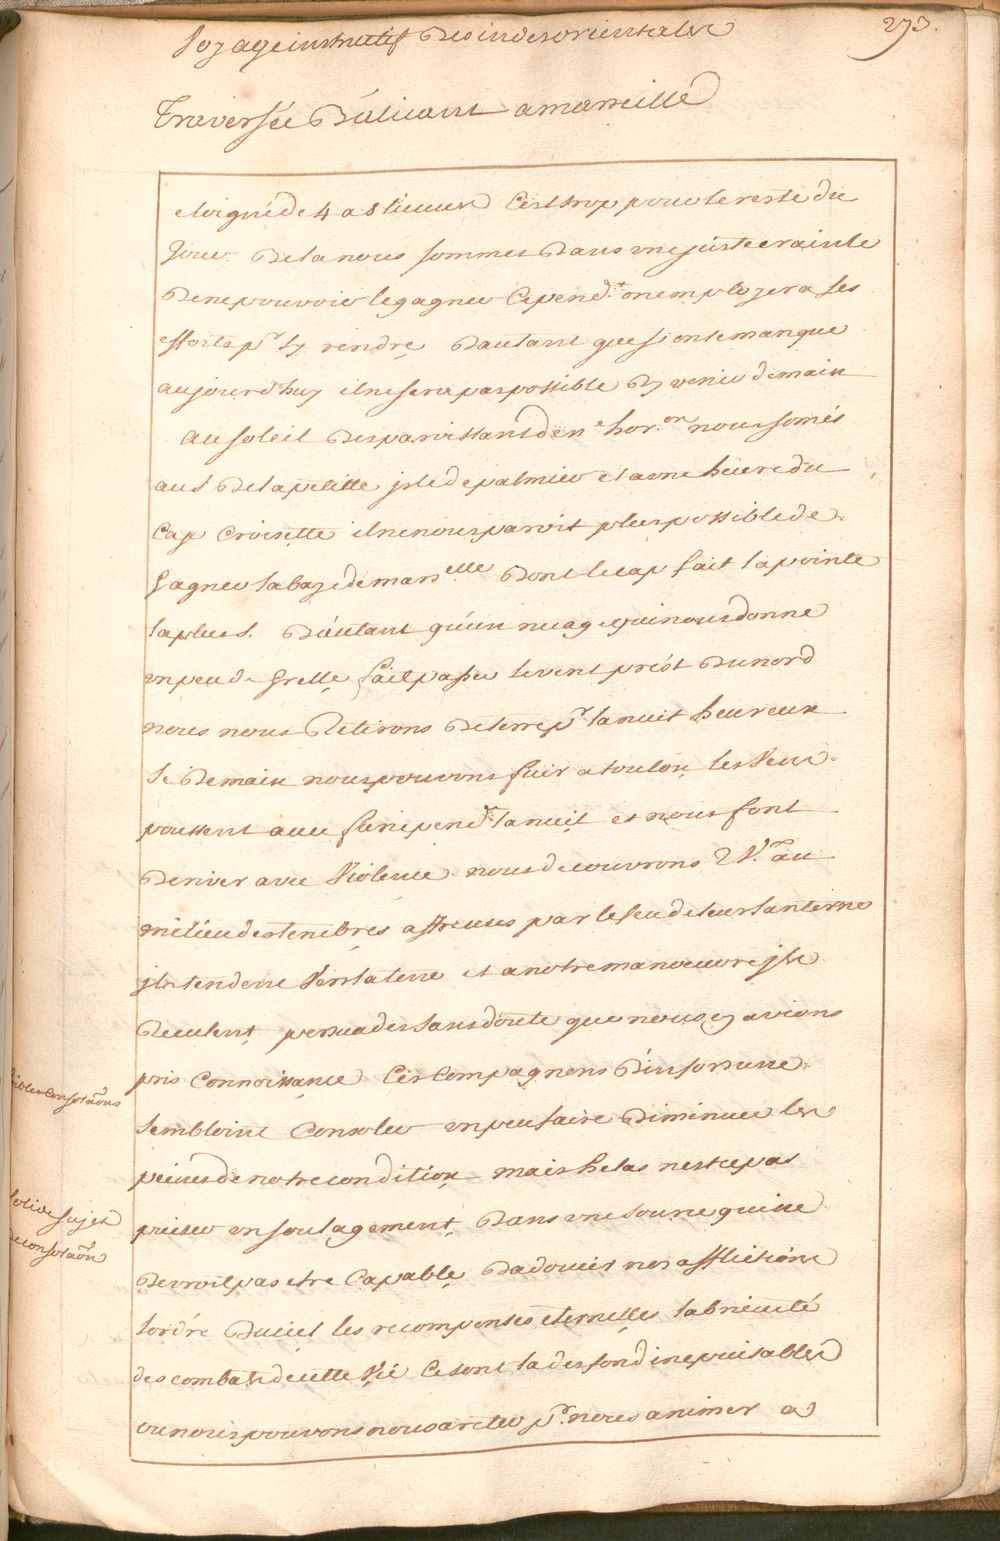 Voyage instructif Des indes orientales
273.
Traversée D'alicant a marseille
eloigné de 4 a 5 lieues C'est trop pour le reste du
Jour. De la nous sommes Dans une juste crainte
De ne pouvoir le gagner Cepend.t on employera ses
efforts p.r s'y rendre Dautant que si on le manque
aujourd'huy il ne sera pas possible D'y venir demain
Au soleil Disparoissant de n.e hor.on nous somes
au S De la petitte jsle de palmier et a une heure du
Cap Croisette il ne nous paroit plus possible de
Gagner la baye de mars.elle Dont le cap fait la pointe
la plus S. D'autant qu'un nuage qui nous donne
un peu de Grelle fait passer le vent prés Du nord
nous nous Retirons De terre p.r la nuit heureux
Si Demain nous pouvons fuir a toulon les Vens
poussent avec furie pend.t la nuit et nous font
Deriver avec Violence nous decouvrons 2 V.x au
milieu des tenebres affreuses par le feu de leurs lanterne
jls tendent Vers la terre et a notre manoeuvre jls
Reculent persuades sans doute que nous en avions
pris Connoissance Ces Compagnons D'infortune
Sembloint Consoler un peu faire Diminuer les
peines de notre condition mais helas n'est ce pas
prister un soulagement Dans une source qui ne
Devroit pas etre Capable D'adoucir nos afflictions
lordre Du ciel les recompenses eternelles la brieveté
des combats de cette Vie Ce sont la des fond inepuisables
ou nous pouvons nous areter p.r nous animer a
foibles consolaons
solide sujet
de consolaon